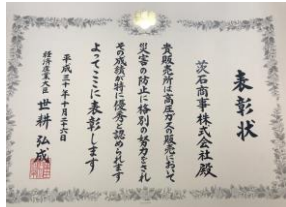 表彰状
茨石商事株式会社殿
貴販売所は高圧ガス販売において
災害の防止に格別の努力をされ
その成績が特に優秀と認められます
よってここに表彰します
平成三十年十月二十六日
経済産業大臣 世耕弘成